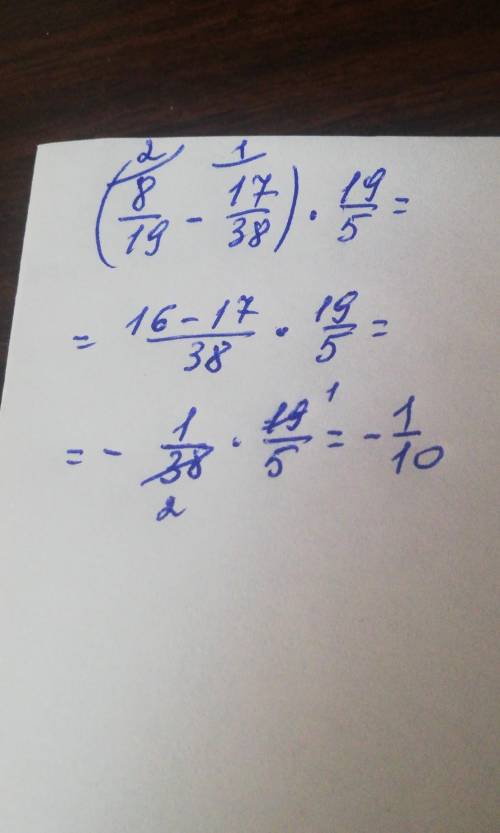 2 1
(8/19 - 17/38) · 19/5 =
= 16-17/38 · 19/5 =
1
= - 1/38 · 19/5 = - 1/10
2